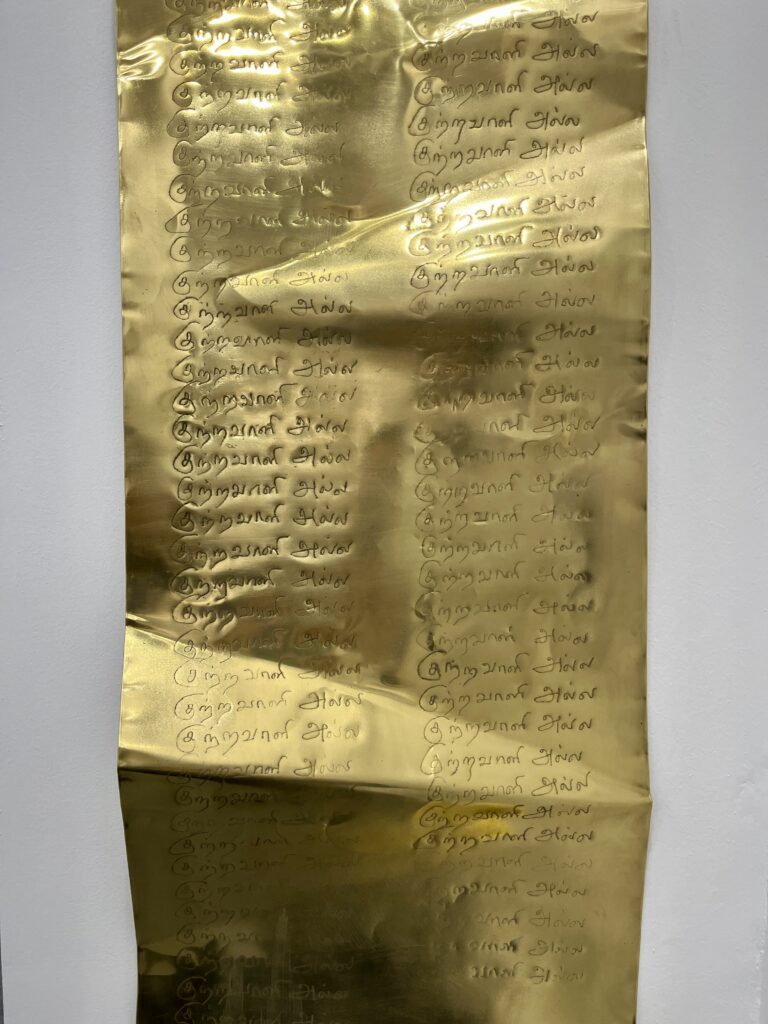 குற்றவாளி அல்ல
குற்றவாளி அல்ல
குற்றவாளி அல்ல
குற்றவாளி அல்ல
குற்றவாளி அல்ல
குற்றவாளி அல்ல
குற்றவாளி அல்ல
குற்றவாளி அல்ல
குற்றவாளி அல்ல
குற்றவாளி அல்ல
குற்றவாளி அல்ல
குற்றவாளி அல்ல
குற்றவாளி அல்ல
குற்றவாளி அல்ல
குற்றவாளி அல்ல
குற்றவாளி அல்ல
குற்றவாளி அல்ல
குற்றவாளி அல்ல
குற்றவாளி அல்ல
குற்றவாளி அல்ல
குற்றவாளி அல்ல
குற்றவாளி அல்ல
குற்றவாளி அல்ல
குற்றவாளி அல்ல
குற்றவாளி அல்ல
குற்றவாளி அல்ல
குற்றவாளி அல்ல
குற்றவாளி அல்ல
குற்றவாளி அல்ல
குற்றவாளி
குற்றவாளி அல்ல
குற்றவாளி அல்ல
குற்றவாளி அல்ல
குற்றவாளி அல்ல
குற்றவாளி அல்ல
குற்றவாளி அல்ல
குற்றவாளி அல்ல
குற்றவாளி அல்ல
குற்றவாளி அல்ல
குற்றவாளி அல்ல
குற்றவாளி அல்ல
குற்றவாளி அல்ல
குற்றவாளி அல்ல
குற்றவாளி அல்ல
குற்றவாளி அல்ல
அல்ல
குற்றவாளி அல்ல
குற்றவாளி அல்ல
குற்றவாளி அல்ல
குற்றவாளி அல்ல
குற்றவாளி அல்ல
குற்றவாளி அல்ல
குற்றவாளி அல்ல
குற்றவாளி அல்ல
குற்றவாளி அல்ல
குற்றவாளி அல்ல
குற்றவாளி அல்ல
குற்றவாளி அல்ல
குற்றவாளி அல்ல
குற்றவாளி அல்ல
அல்ல
குற்றவாளி அல்ல
அல்ல
அல்ல
அல்ல